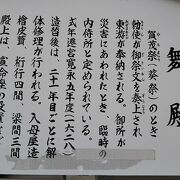 舞殿
賀茂祭(葵祭)のとき
勅使が御祭文を奏上され
東游が奉納される。御所が
災害にあわれたとき、臨時の
内侍所と定められている。
式年遷宮寛永五年度(一六二八)
造替後は、二十一年目ごとに解
体修理が行われる。入母屋造
檜皮葺、桁行四間、梁間三間